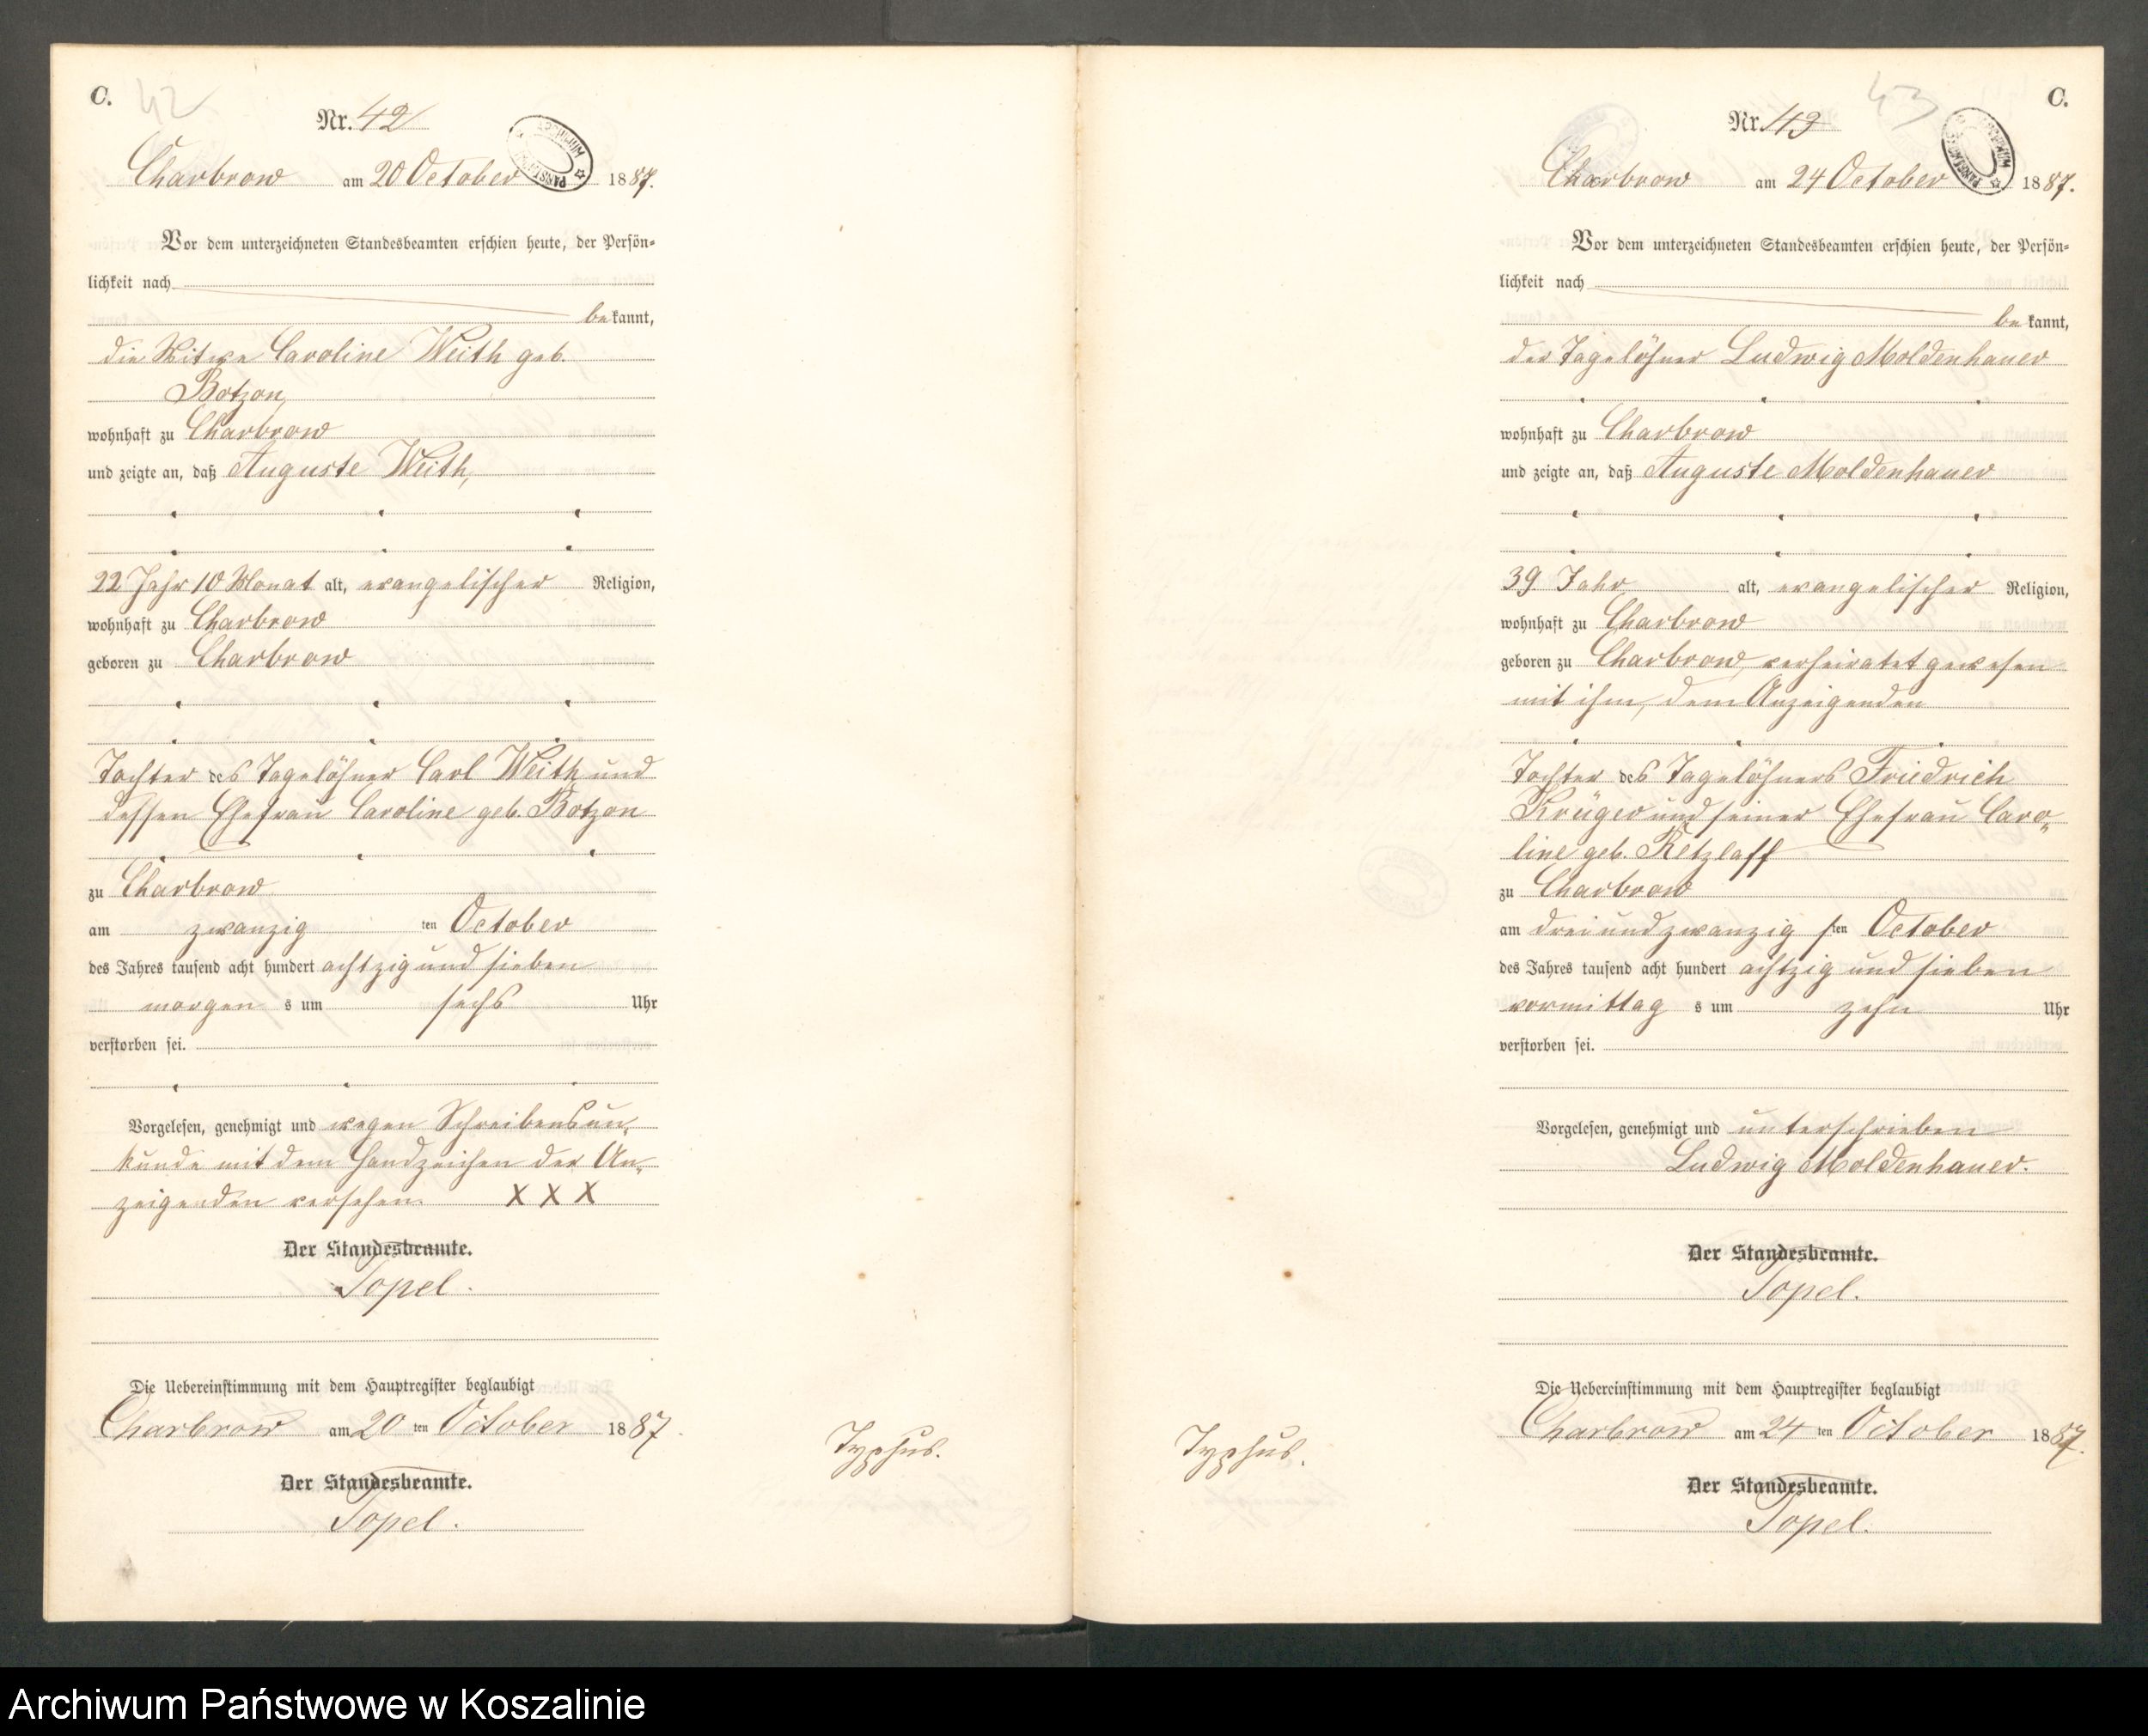 C.
42
Nr. 42
Charbrow am 20 October 1887.
Vor dem unterzeichneten Standesbeamten erschien heute, der Persön-
lichkeit nach
bekannt,
die Witwe Caroline Weith geb.
Botzon,
wohnhaft zu Charbrow
und zeigte an, daß Auguste Weith,
22 Jahr 10 Monat alt, evangelischer Religion,
wohnhaft zu Charbrow
geboren zu Charbrow
Tochter des Tagelöhner Carl Weith und
dessen Ehefrau Caroline geb. Botzon
zu Charbrow
am zwanzig ten October
des Jahres tausend acht hundert achtzig und sieben
morgen s um sechs Uhr
verstorben sei.
Vorgelesen, genehmigt und wegen Schreibensun-
kunde mit dem Handzeichen der An-
zeigenden versehen. X X X
Der Standesbeamte.
Topel.
Die Uebereinstimmung mit dem Hauptregister beglaubigt
Charbrow am 20 ten October 1887.
Der Standesbeamte.
Topel.
Typhus.
C.
43
Nr. 43
Charbrow am 24 October 1887.
Vor dem unterzeichneten Standesbeamten erschien heute, der Persön-
lichkeit nach
bekannt,
der Tagelöhner Ludwig Moldenhauer
wohnhaft zu Charbrow
und zeigte an, daß Auguste Moldenhauer
39 Jahr alt, evangelischer Religion,
wohnhaft zu Charbrow
geboren zu Charbrow, verheiratet gewesen
mit ihm, dem Anzeigenden
Tochter des Tagelöhners Friedrich
Krüger und seiner Ehefrau Caro-
line geb. Retzlaff
zu Charbrow
am drei und zwanzig sten October
des Jahres tausend acht hundert achtzig und sieben
vormittag s um zehn Uhr
verstorben sei.
Vorgelesen, genehmigt und unterschrieben
Ludwig Moldenhauer.
Der Standesbeamte.
Topel.
Die Uebereinstimmung mit dem Hauptregister beglaubigt
Charbrow am 24 ten October 1887.
Der Standesbeamte.
Topel.
Typhus.
Archiwum Państwowe w Koszalinie